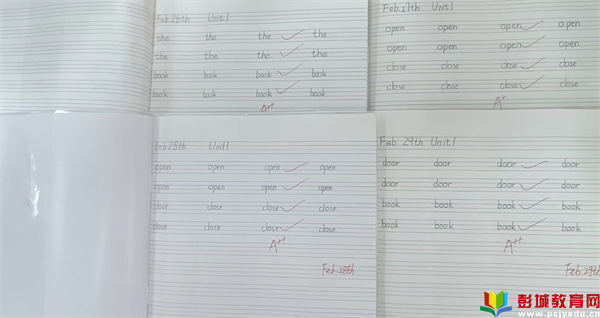 Feb.28th Unit1
the the the the
the the the the
book book book book
book book book book
A++
Feb.27th Unit1
open open open open
open open open open
close close close close
close close close close
A+
Feb.28th Unit1
open open open open
open open open open
close close close close
close close close close
A++
Feb.28th
Feb. 29th Unit1
door door door door
door door door door
book book book book
book book book book
A++
Feb.29th
彭城教育网
www.pcjyedu.cn